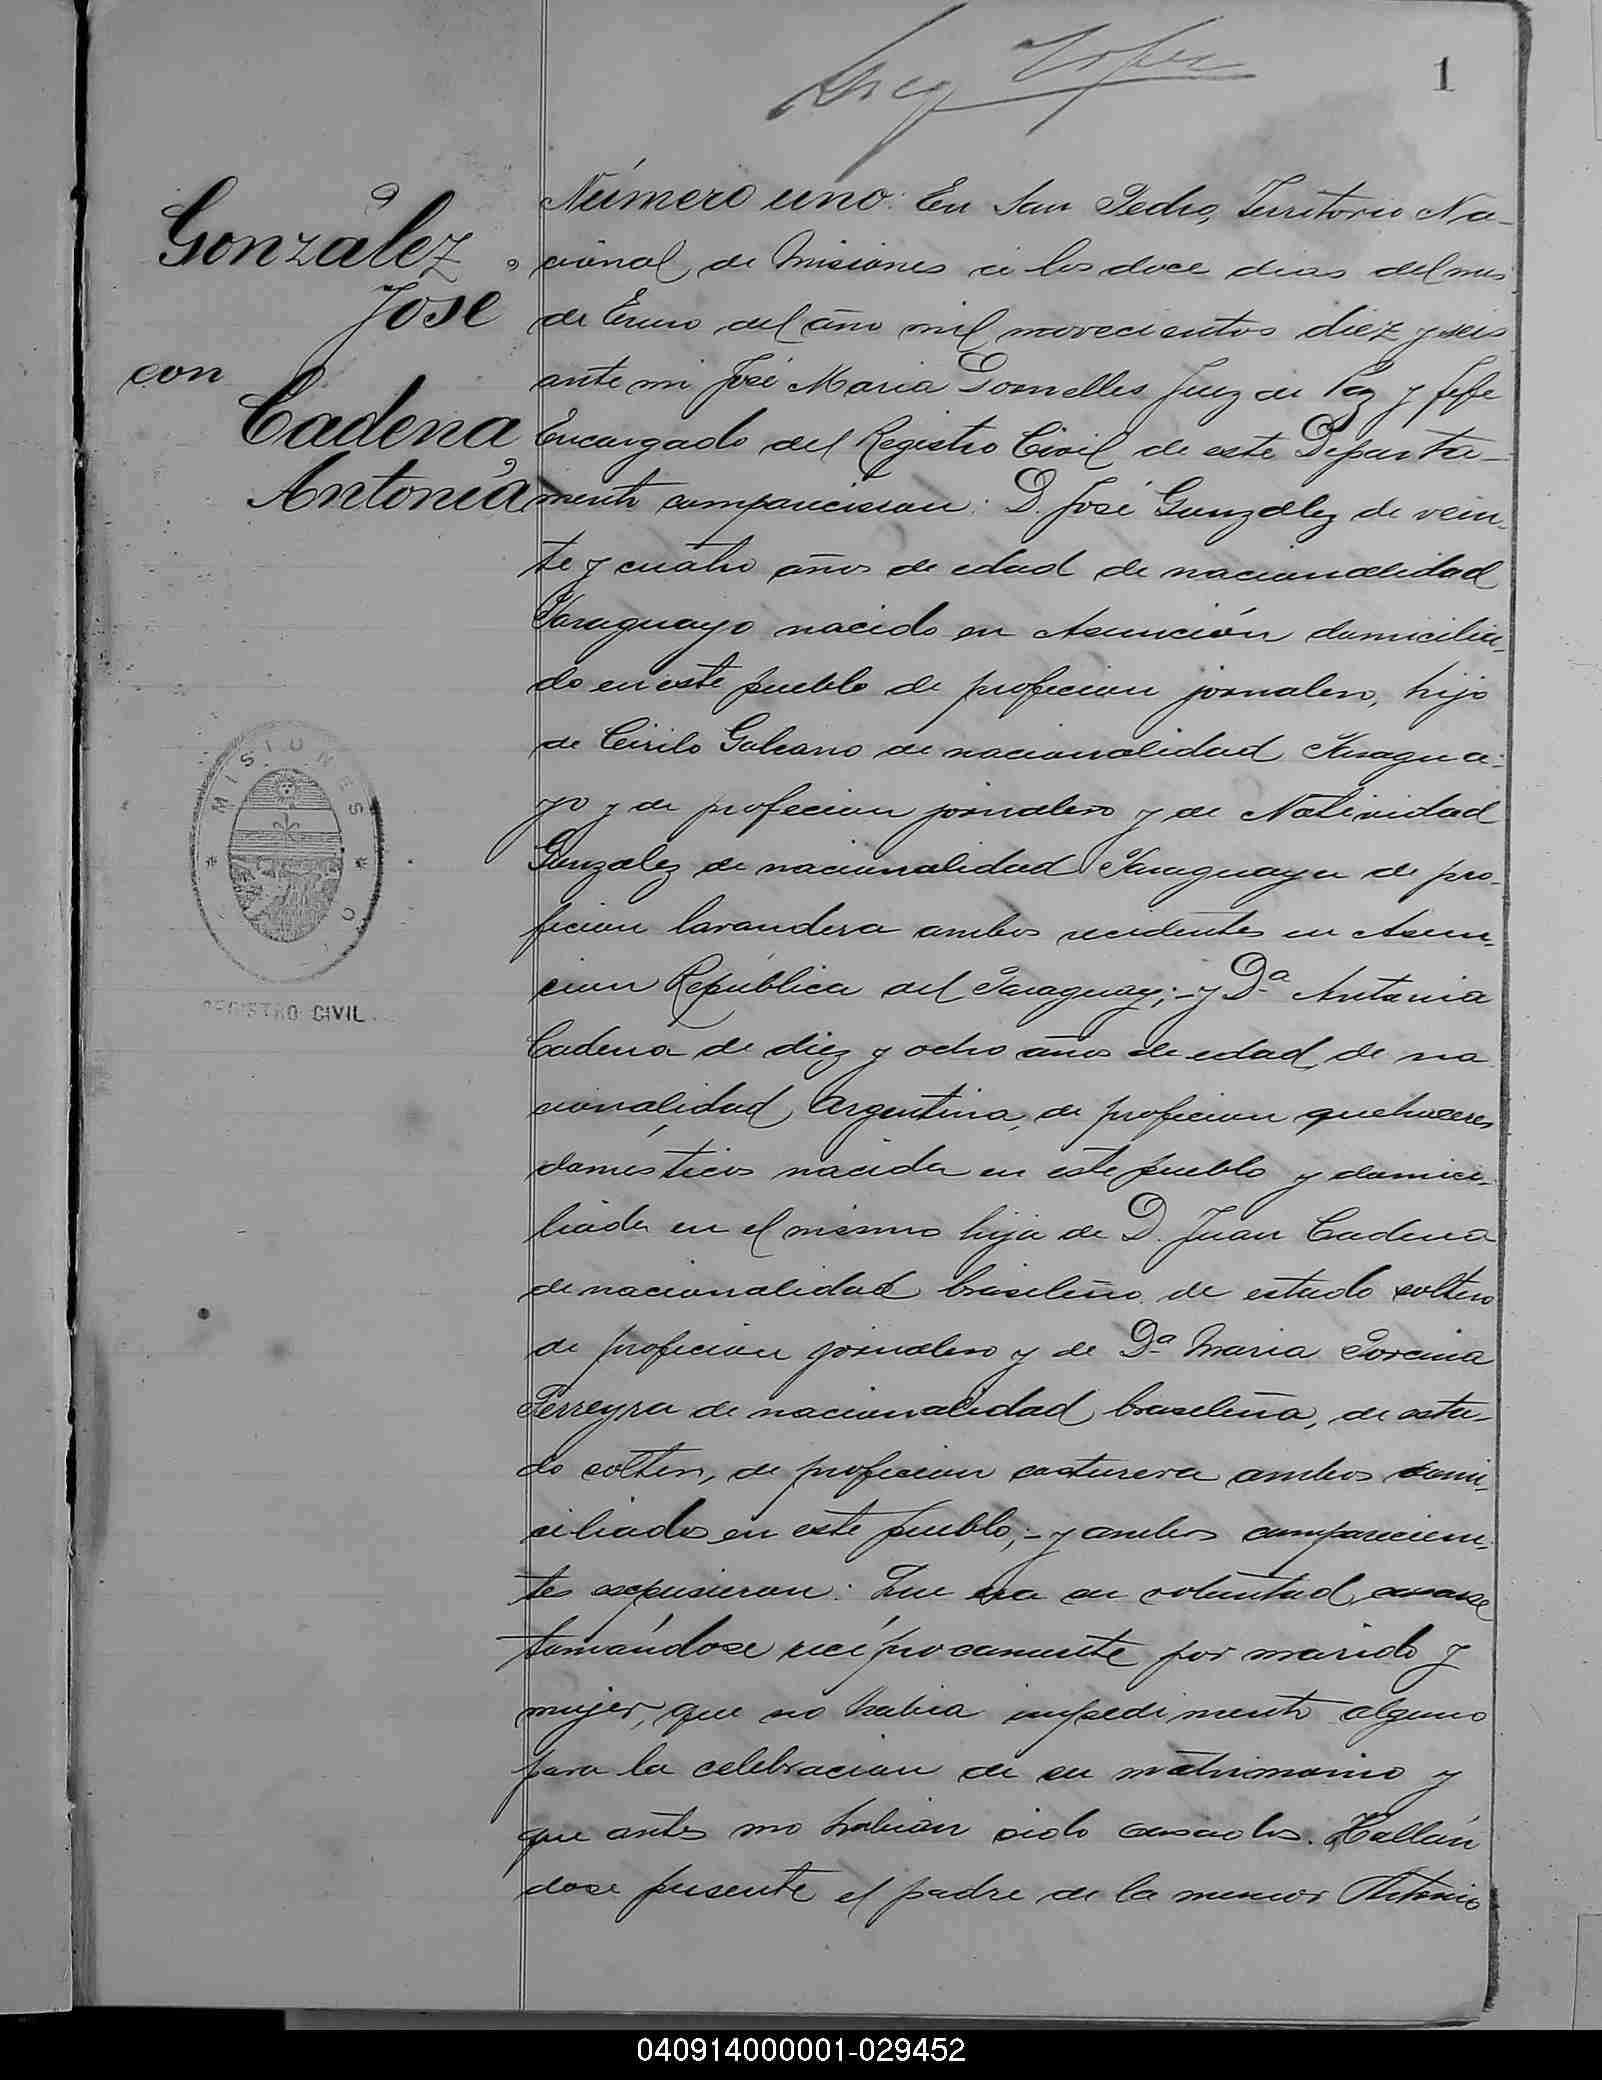 1
González
José
con
Cadena
Antonia
MISIONES
REGISTRO CIVIL
Número uno: En San Pedro, Territorio Na-
cional de Misiones a los doce dias del mes
de Enero del año mil novecientos diez y seis
ante mi José Maria Dornelles Juez de Paz y Jefe
Encargado del Registro Civil de este Departa-
mento comparecieron: D. José González de vein-
te y cuatro años de edad de nacionalidad
Paraguayo nacido en Asunción domicilia-
do en este pueblo de profecion jornalero, hijo
de Cirilo Galeano de nacionalidad Paragua-
yo y de profecion jornalero y de Natividad
Gonzalez de nacionalidad Paraguaya de pro-
fecion lavandera ambos recidentes en Asun-
cion República del Paraguay;- y Dª Antonia
Cadena de diez y ocho años de edad, de na
cionalidad Argentina, de profecion quehaceres
domésticos nacida en este pueblo y domici-
liada en el mismo hija de D. Juan Cadena
de nacionalidad brasileño de estado soltero
de profecion jornalero y de Dª Maria
Ferreyra de nacionalidad brasileña, de esta-
do soltera, de profecion costurera ambos domi-
ciliados en este pueblo;- y ambos comparecien-
tes expusieron: Que era su voluntad casarse
tomándose recíprocamente por marido y
mujer, que no habia impedimento alguno
para la celebracion de su matrimonio y
que antes no habian sido casados. Hallán
dose presente el padre de la menor Antonia
040914000001-029452